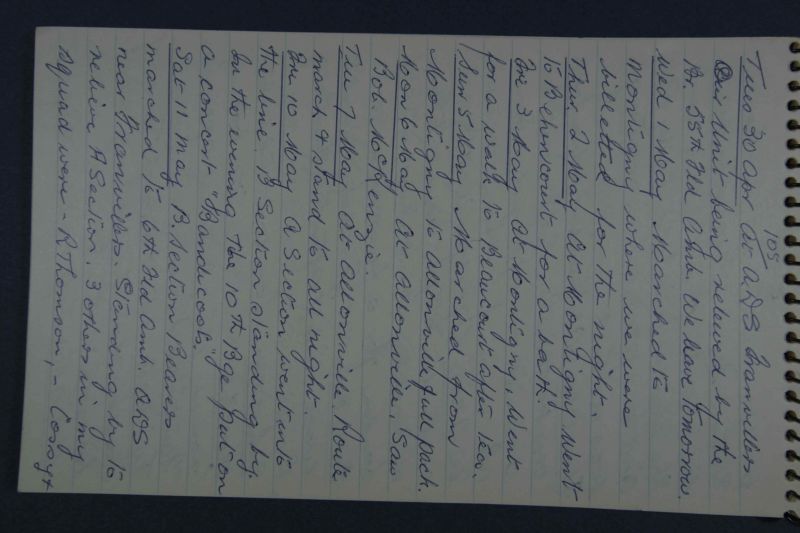 105
Tues 30 Apr at ADS Franvillers
Our Unit being relieved by the
Br. 55th Fld Amb. We leave tomorrow.
Wed 1 May Marched to
Montigny where we were
billetted for the night.
Thur 2 May At Montigny Went
to Behencourt for a bath.
Fri 3 May At Montigny, Went
for a walk to Beaucourt after tea.
Sun 5 May Marched from
Montigny to Allonville full pack.
Mon 6 May At Allonville, Saw
Bob. McKenzie.
Tue 7 May At Allonville Route
march & stand to all night.
Fri 10 May A Section went into
the line. B Section standing by.
In the evening the 10th Bge put on
a concert "Bandicoots"
Sat 11 May B. Section Bearers
marched to 6th Fld Amb. ADS
near Franvillers. Standing by to
relieve A Section. 3 others in my
squad were - R Thomson, -